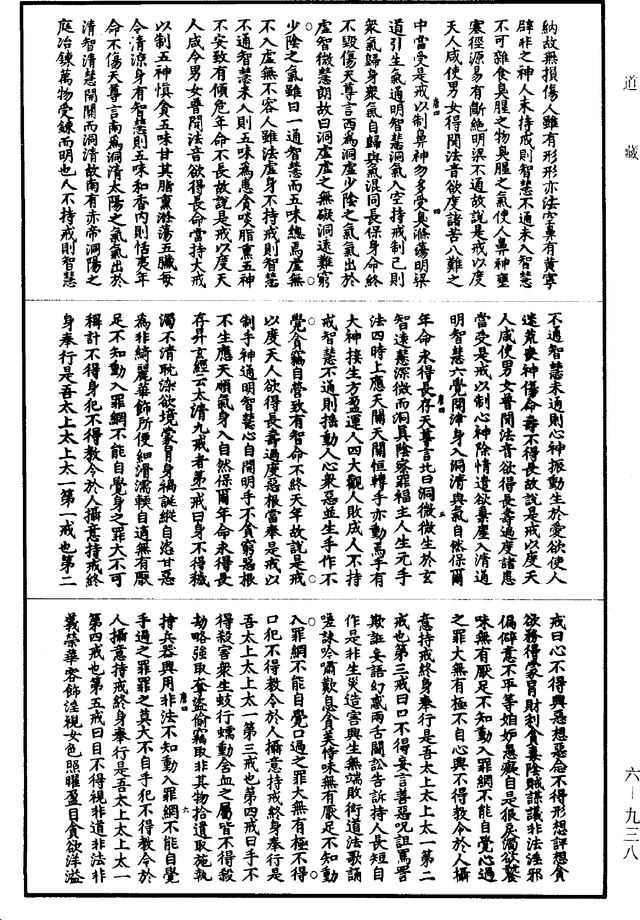 道藏
納故無損傷人雖有形形亦法空鼻有黃寧
辟非之神人未持戒則智慧不通未入智慧
不可雜食臭腥之物臭腥之氣使人鼻神壅
塞徑源易有斷絕明梁不通故說是戒以度
天人咸使男女得聞法音欲度諸苦八難之
中當受是戒以制鼻神勿多受臭滌蕩明梁
道引生氣通明智慧洞氣入空持戒制己則
眾氣歸身眾氣自歸與氣混同長保身命終
不毀傷天尊言西為洞虛少陰之氣氣出於
虛智微慧朗故曰洞虛虛之無礙洞遠難窮
少陰之氣雖曰一通智慧而五味總焉虛無
不入虛無不容人雖法虛身不持戒則智慧
不通智慧未入則五味為應食啖脂熏五神
不安致有傾危年命不長故說是戒以度天
人咸令男女普聞法音欲得長命當持大戒
以制五神慎貪五味甘其脂熏滌蕩五臟每
令清涼身有智慧則五味和香內則恬夷年
命不傷天尊言南為洞清太陽之氣氣出於
清智清慧開關而洞清故南有赤帝洞陽之
庭冶鍊萬物受鍊而明也人不持戒則智慧
不通智慧未通則心神振動生於愛欲使人
迷荒喪神傷命壽不得長故說是戒以度天
人咸使男女普聞法音欲得長壽過度諸患
當受是戒以制心神除情遣欲棄塵入清通
明智慧六覺開津身入洞清與氣自然保爾
年命永得長存天尊言北曰洞微微生於玄
智遠慧深微而洞具陰察罪福主人生元手
法四時上應天關天關恒轉手亦動焉手有
大神接生方盈運人四大觀人敗成人不持
戒智慧不通則搖動人心眾惡並生手作不
覺貪竊自營致有智命不終天年故說是戒
以度天人欲得長壽過度惡根當奉是戒以
制手神通明智慧心自開明手不貪竊惡根
不生應天順氣身入自然保爾年命永得長
存昇玄經云太清九戒者第一戒曰身不得穢
濁不清耽淫欲境蒙冒身禍誕縱自恣甘惡
為非綺麗華飾所便細滑濡輭自適無有厭
足不知動入罪網不能自覺身之罪大不可
稱計不得身犯不得教令於人攝意持戒終
身奉行是吾太上太上太一第一戒也第二
戒曰心不得興惡想惡念不得形想評想貪
欲務得蒙冒財利貪妻陰賊謀議非法淫邪
偏僻意不平等妬妒愚癡自是很戾濁欲饕
味無有厭足不知動入罪網不能自覺心過
之罪大無有極不自心興不得教令於人攝
意持戒終身奉行是吾太上太上太一第二
戒也第三戒曰口不得妄言善惡呪詛罵詈
欺誑妄語幻惑兩舌鬪訟告訴持人長短自
作是非生災造害興生無端敗衒道法歌誦
嗟詠吟嘯歎息貪美恃味無有厭足不知動
入罪網不能自覺口過之罪大無有極不得
口犯不得教令於人攝意持戒終身奉行是
吾太上太上太一第三戒也第四戒曰手不
得殺害眾生蚑行蠕動含血之屬皆不得殺
劫略強取奪盜偷竊取非其物拾遺取施執
持兵器興用非法不知動入罪網不能自覺
手過之罪罪之莫大不自手犯不得教令於
人攝意持戒終身奉行是吾太上太上太一
第四戒也第五戒曰目不得視非道非法非
義榮華容飾淫視女色照曜盈目貪欲洋溢
六－九三八